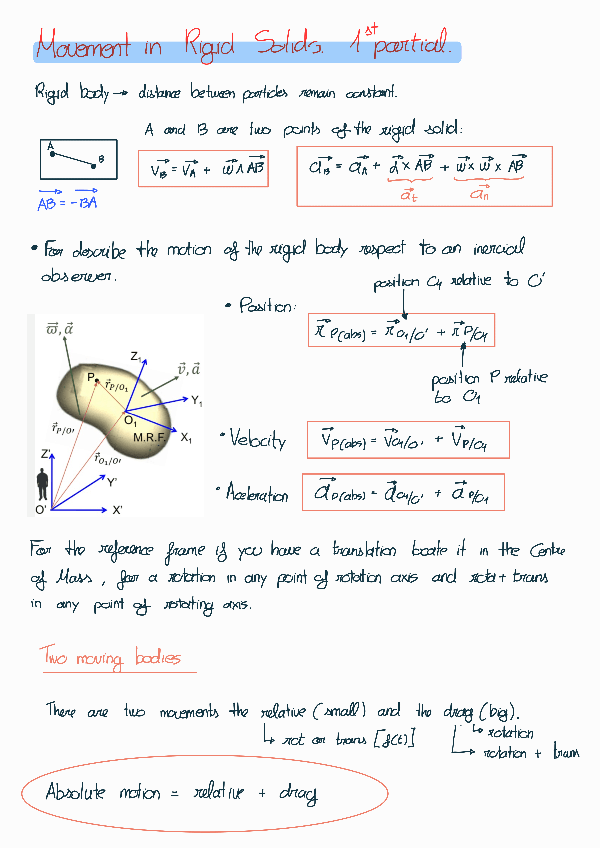 Movement in Rigid Solids. 1st partial.
Rigid body → distance between particles remain constant.
A and B are two points of the rigid solid:
A
B
AB = -BA
VB = VA + ω ∧ AB
aB = aA + α × AB + ω × ω × AB
at
an
• For describe the motion of the rigid body respect to an inercial
observer.
position O1 relative to O'
• Position:
r P(abs) = r O1/O' + r P/O1
position P relative
to O1
ω, α
Z1
v, a
P
r P/O1
Y1
O1
M.R.F.
X1
r P/O'
r O1/O'
Z'
Y'
O'
X'
• Velocity
V P(abs) = V O1/O' + V P/O1
• Aceleration
a P(abs) = a O1/O' + a P/O1
For the reference frame if you have a translation locate it in the Centre
of Mass, for a rotation in any point of rotation axis and rota + trans
in any point of rotating axis.
Two moving bodies
There are two movements the relative (small) and the drag (big).
↳ rot or trans [f(t)]
↳ rotation
↳ rotation + trans
Absolute motion = relative + drag